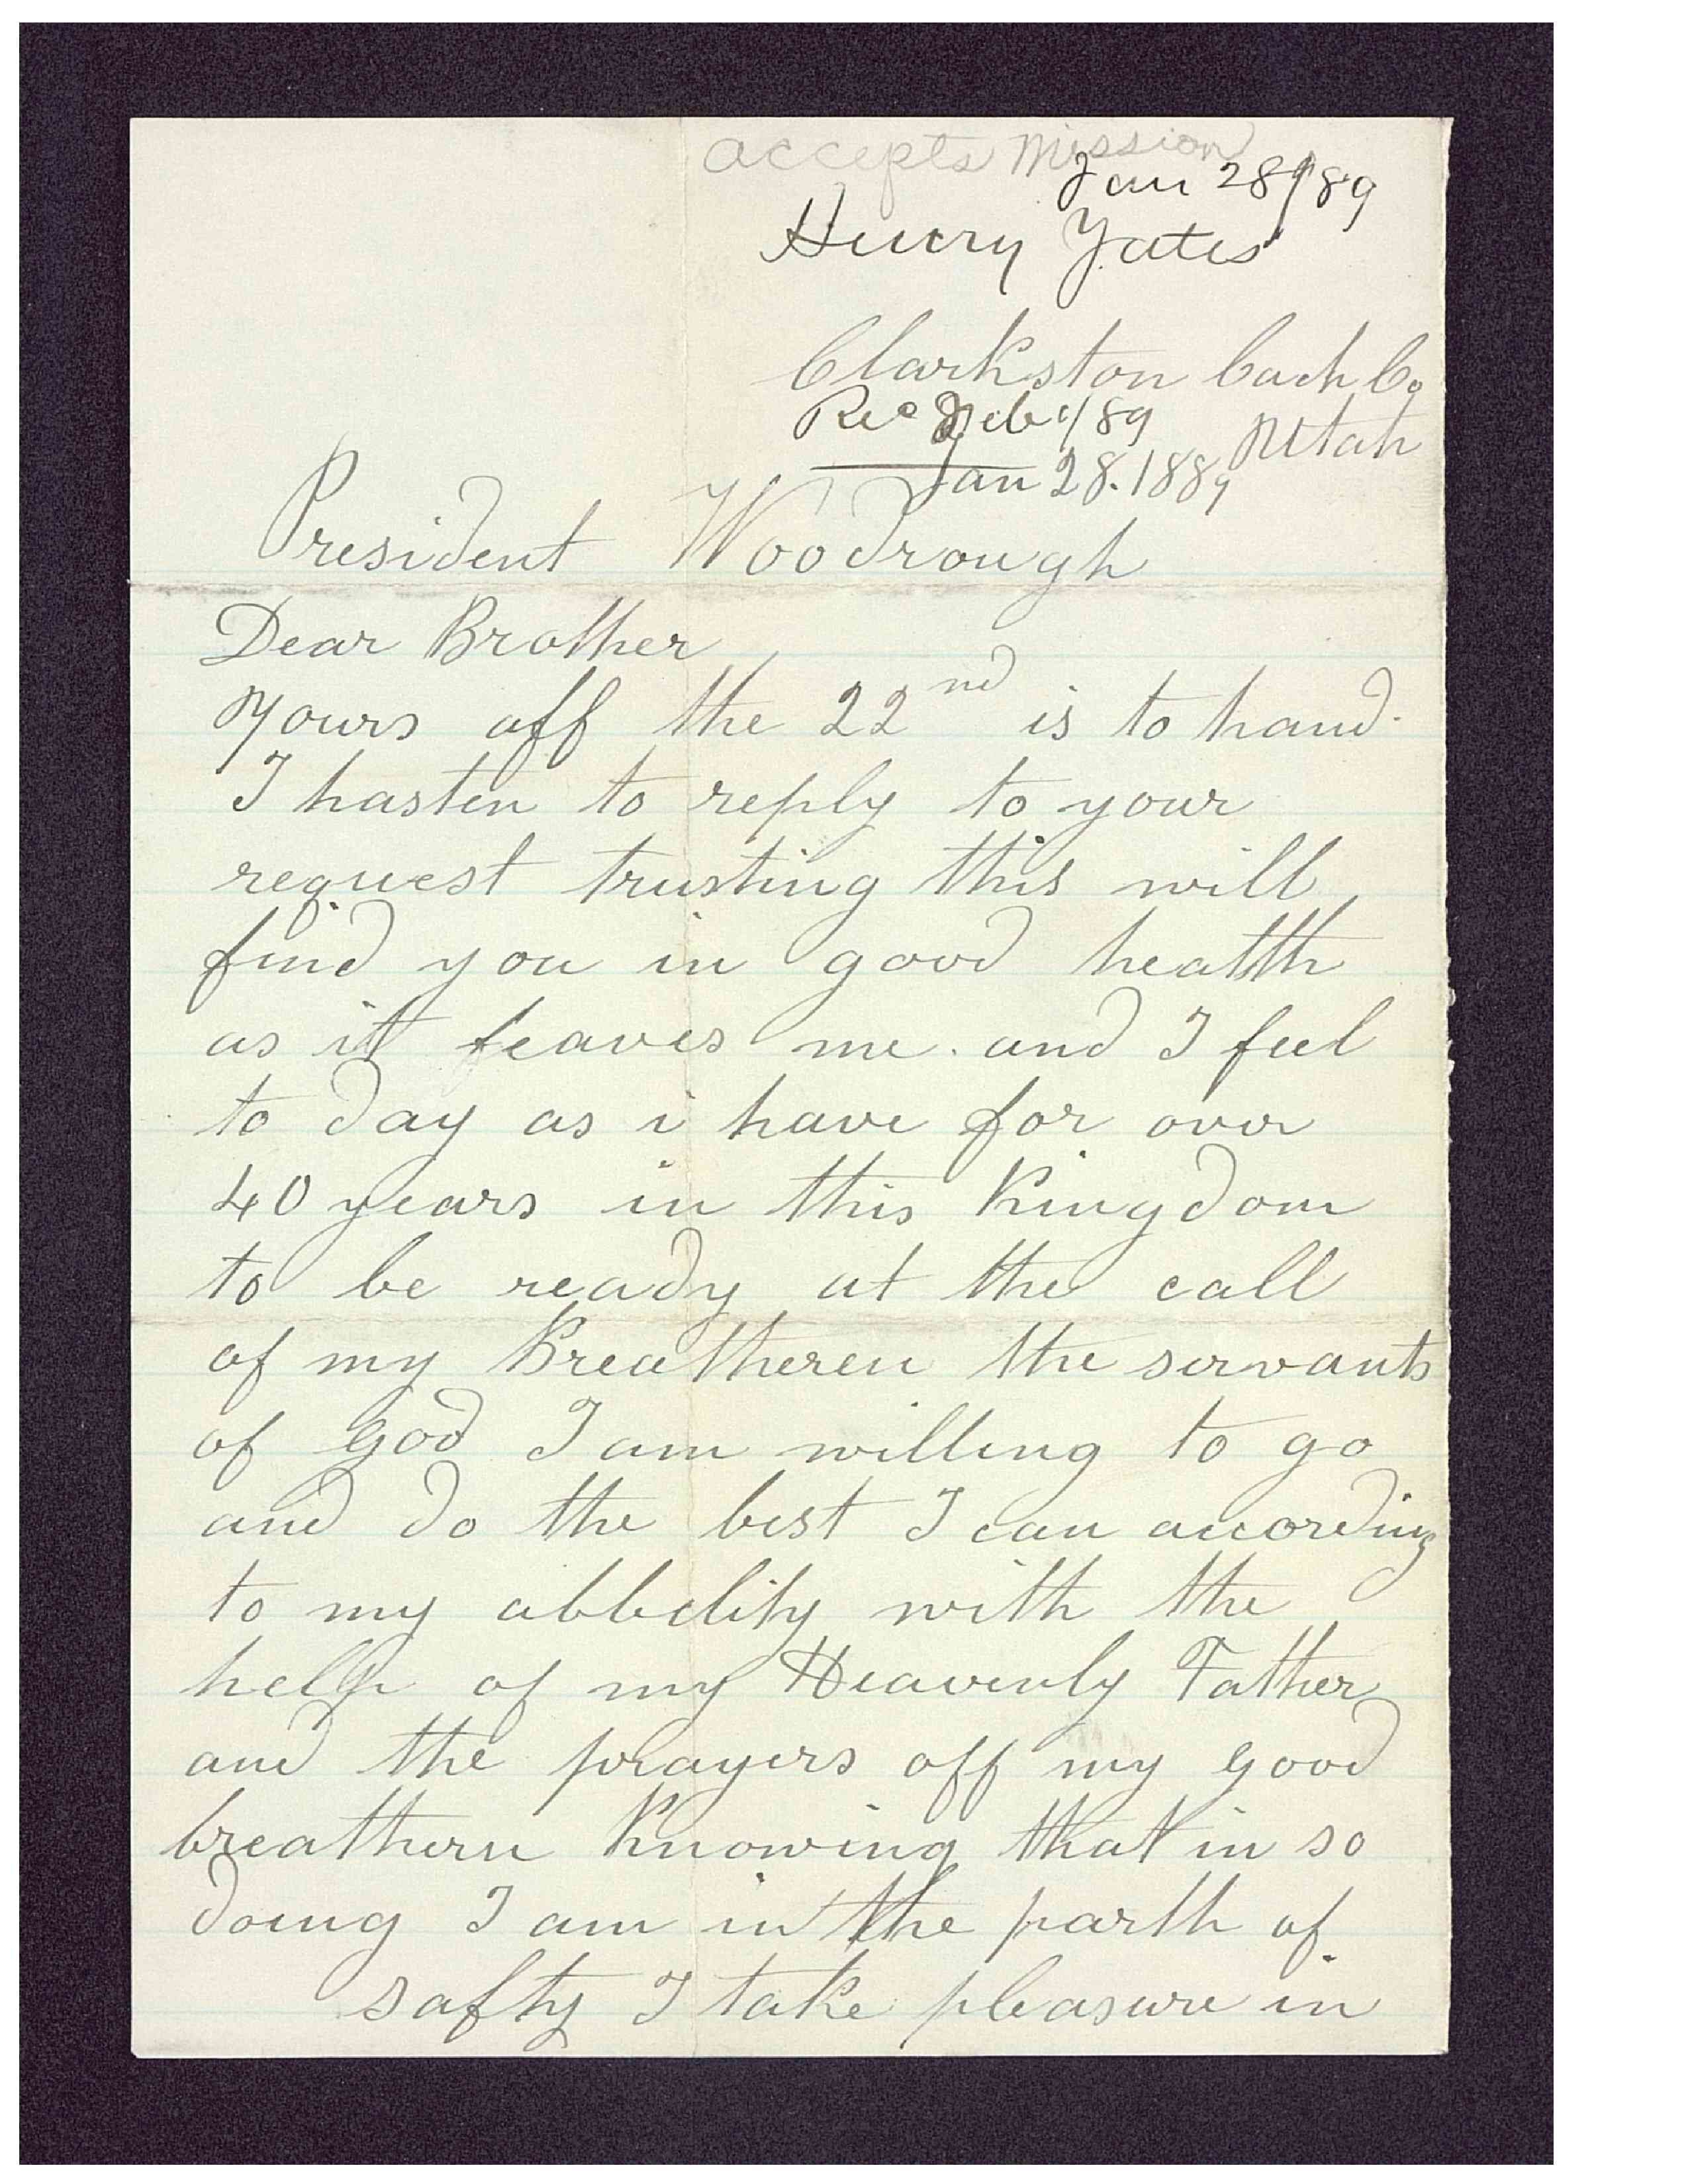 accepts Mission
Jan 28/89
Henry Yates
Clarkston Cach Co
Rec Feb 1/89 Utah
Jan 28. 1889
President Woodrough
Dear Brother
Yours off the 22nd is to hand.
I hasten to reply to your
request trusting this will
find you in good health
as it leaves me. and I feel
to day as i have for over
40 years in this Kingdom
to be ready at the call
of my Breatheren the servants
of god I am willing to go
and do the best I can according
to my abbelity with the
help of my Heavenly Father
and the prayers off my good
breathern Knowing that in so
doing I am in the parth of
safty I take pleasure in